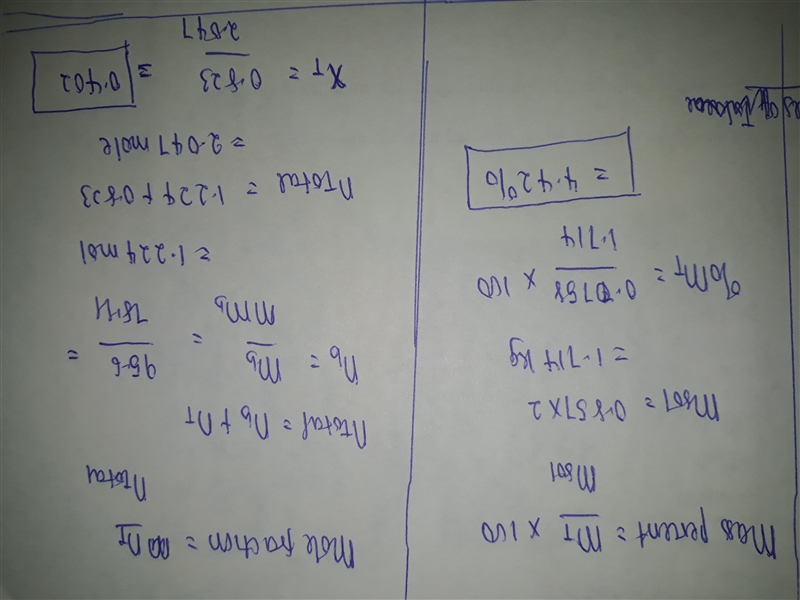 Mass percent = m_T / m_sol × 100
m_sol = 0.857 × 2
= 1.714 kg
% m_T = 0.0758 / 1.714 × 100
= 4.42%
Mole fraction = n_T / n_total
n_total = n_b + n_T
n_b = m_b / mm_b = 95.6 / 78.11 =
= 1.224 mol
n_Total = 1.224 + 0.823
= 2.047 mole
X_T = 0.823 / 2.047 = 0.402